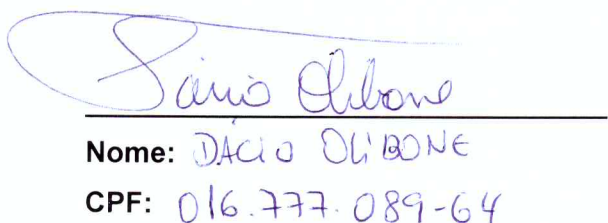 Dácio Olibone
Nome: DÁCIO OLIBONE
CPF: 016.777.089-64